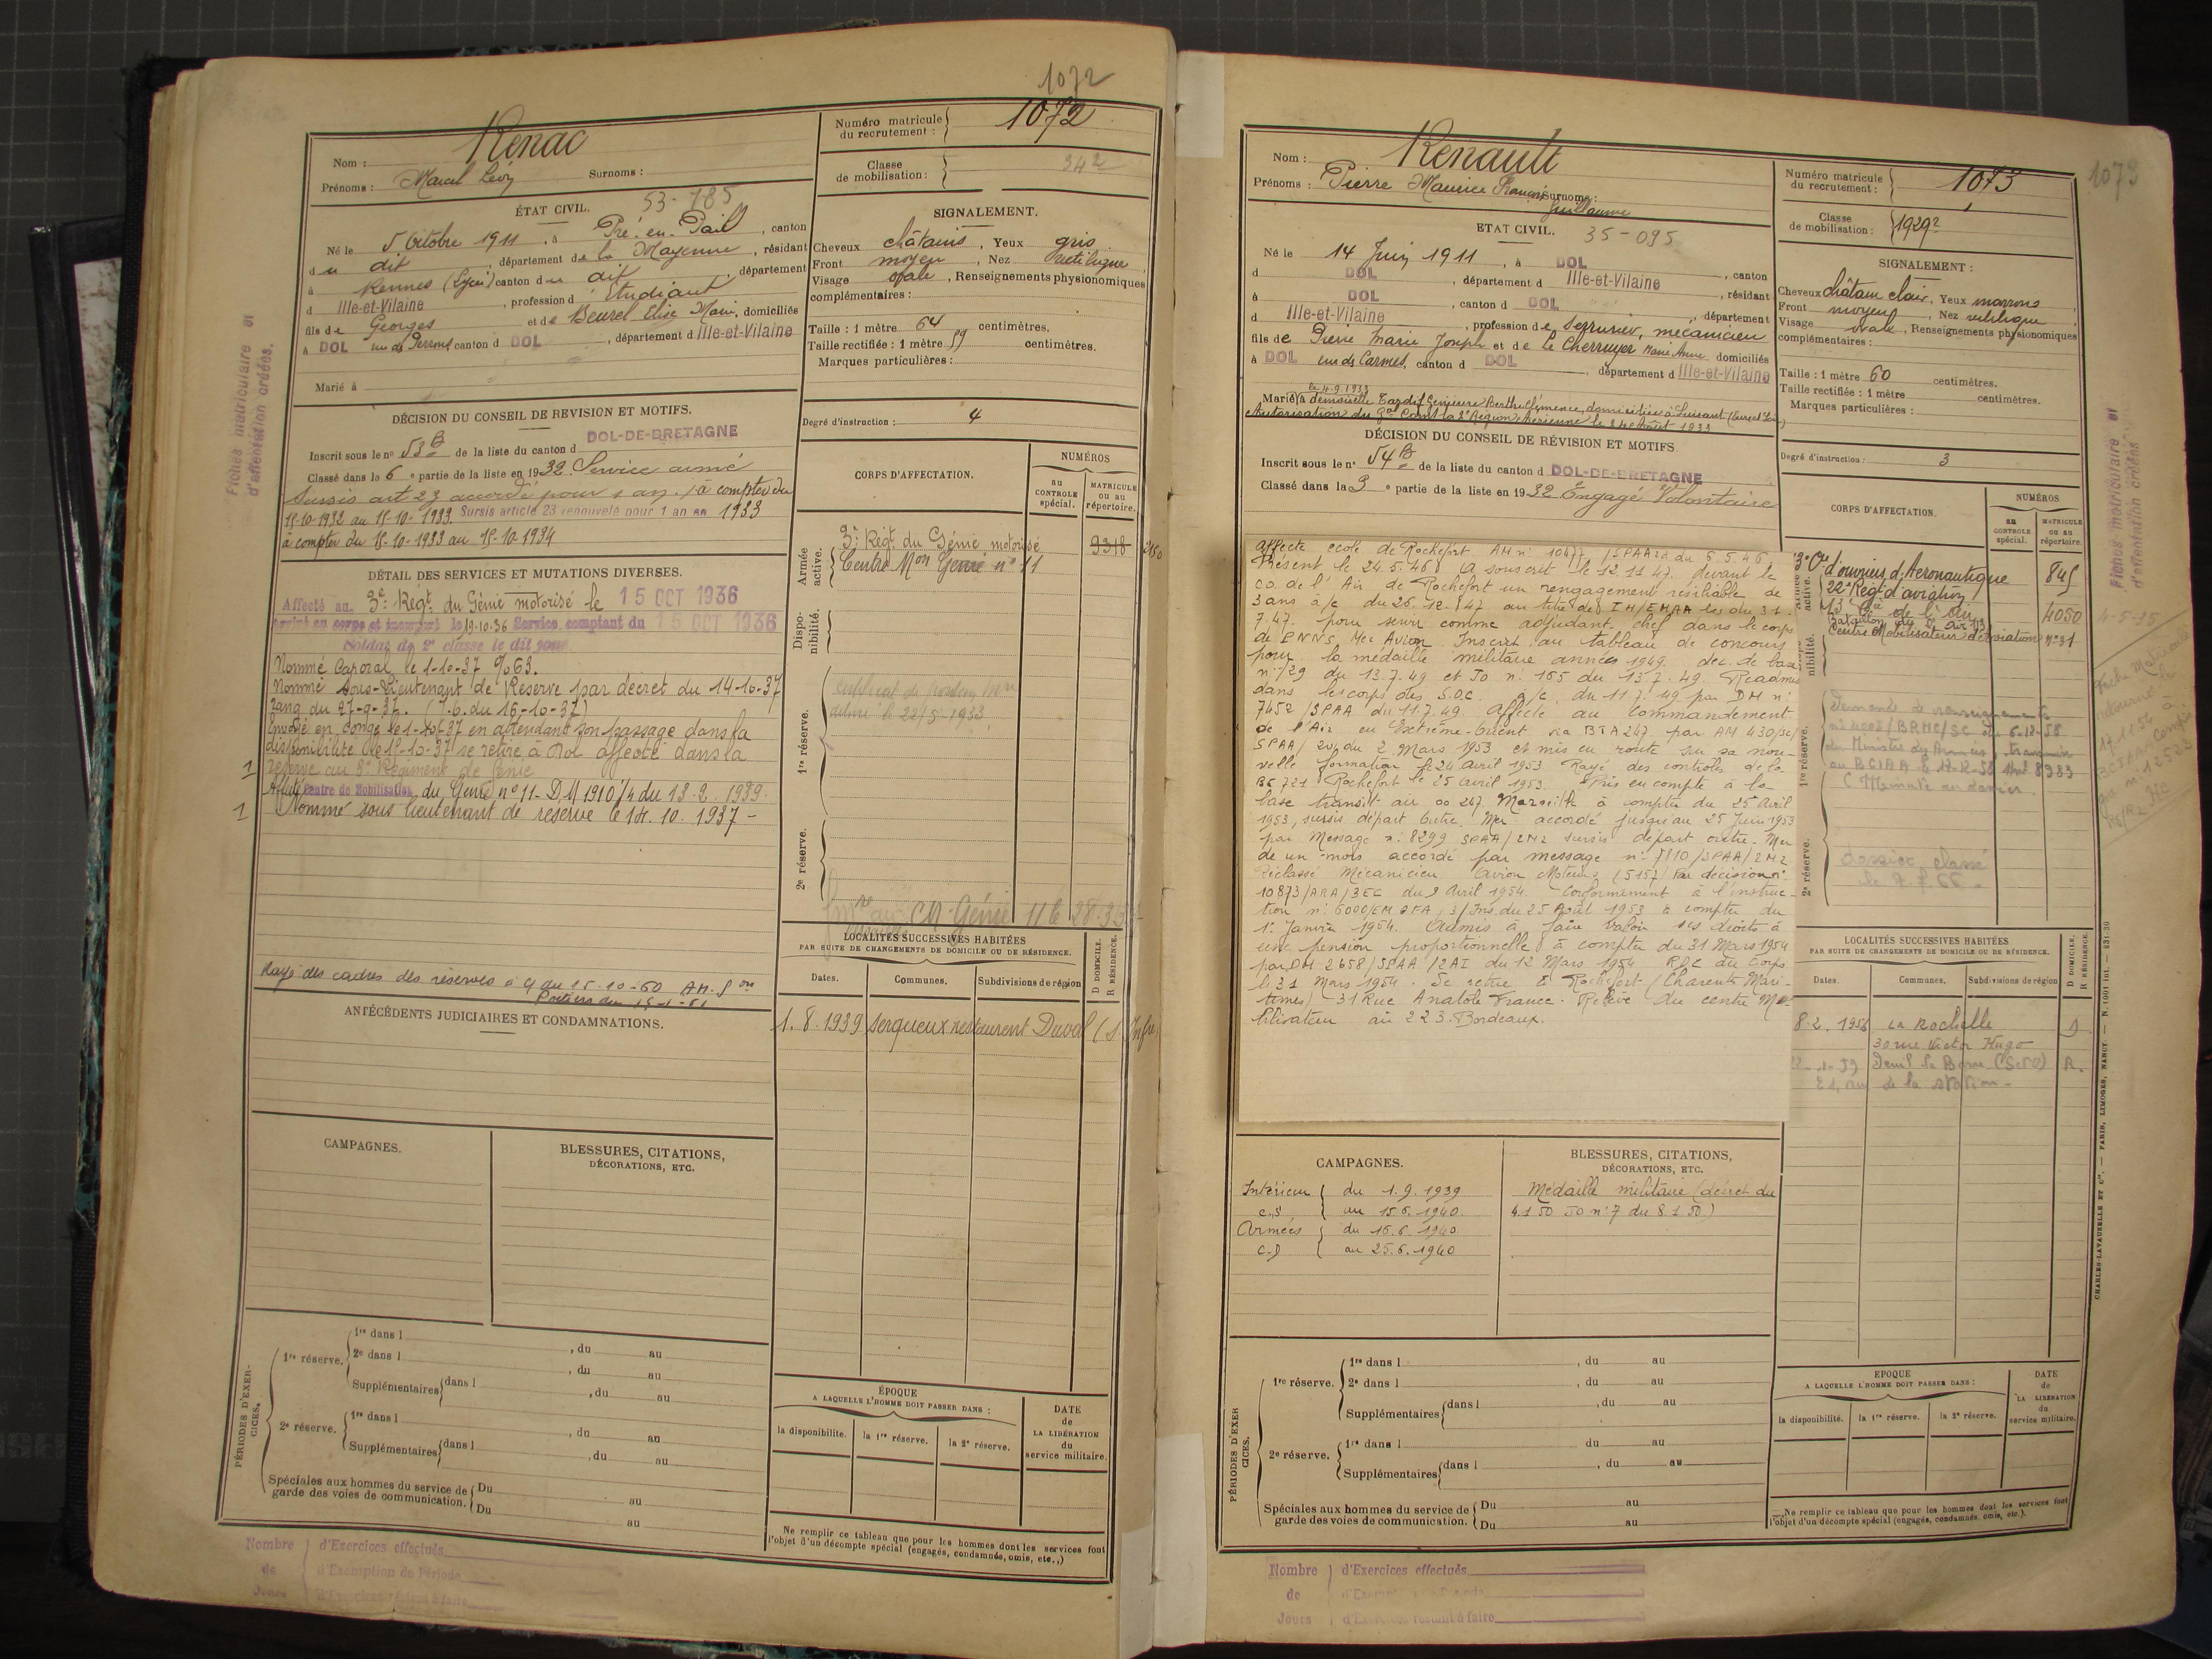 1072
Nom : Renac
Prénoms : Marcel Léon Surnoms :
Numéro matricule du recrutement : 1072
Classe de mobilisation : 34 2
ÉTAT CIVIL. 53-785
Né le 5 Octobre 1911, à Pré-en-Pail, canton
du dit, département de la Mayenne, résidant
à Rennes (Lycée) canton du dit, département
d Ille-et-Vilaine, profession d'étudiant
fils de Georges et de Beurel Elise Marie, domiciliés
à DOL rue de Perrons canton d DOL, département d Ille-et-Vilaine
Marié à
SIGNALEMENT.
Cheveux châtains, Yeux gris
Front moyen, Nez rectiligne
Visage ovale, Renseignements physionomiques
complémentaires :
Taille : 1 mètre 64 centimètres.
Taille rectifiée : 1 mètre 59 centimètres.
Marques particulières :
Degré d'instruction : 4
DÉCISION DU CONSEIL DE REVISION ET MOTIFS.
Inscrit sous le n° 53 B de la liste du canton d DOL-DE-BRETAGNE
Classé dans la 6e partie de la liste en 1932. Service armé
Sursis art 23 accordé pour 1 an, à compter du
15-10-1932 au 15-10-1933. Sursis article 23 renouvelé pour 1 an en 1933
à compter du 15-10-1933 au 15-10-1934
DÉTAIL DES SERVICES ET MUTATIONS DIVERSES.
Affecté au 3e Régt du Génie motorisé le 15 OCT 1936
Arrivé au corps et incorporé le 19.10.36 Service comptant du 15 OCT 1936
Soldat de 2e classe le dit jour
Nommé Caporal le 1-10-37 % 63.
Nommé Sous-Lieutenant de Réserve par décret du 14-10-37
rang du 27-9-37. (J.O. du 16-10-37)
Envoyé en congé le 1-10-37 en attendant son passage dans la
disponibilité le 15-10-37 se retire à Dol affecté dans la
réserve au 3e Régiment de Génie
Affecté Centre de Mobilisation du Génie n° 11 - D.M 1910/4 du 13-2-1939.
Nommé sous lieutenant de réserve le 14.10.1937 -
Rayé des cadres des réserves à c/ du 15-10-60 AM. Son
Poitiers du 15-1-61
CORPS D'AFFECTATION.
NUMÉROS
au CONTROLE spécial.
MATRICULE ou au répertoire.
Armée active.
3e Régt du Génie motorisé 9318
Centre Mon Génie n° 11
Disponibilité.
1re réserve.
délivré le 22/5 1933
2e réserve.
CM Génie 11 le 28.3.39
LOCALITÉS SUCCESSIVES HABITÉES
PAR SUITE DE CHANGEMENTS DE DOMICILE OU DE RÉSIDENCE.
Dates. Communes. Subdivisions de région
D DOMICILE. R RÉSIDENCE.
1.8.1939 Serqueux restaurent Duval (S. Infre)
ANTÉCÉDENTS JUDICIAIRES ET CONDAMNATIONS.
CAMPAGNES.
BLESSURES, CITATIONS, DÉCORATIONS, ETC.
PÉRIODES D'EXERCICES.
1re réserve. 1re dans l , du au
2e dans l , du au
Supplémentaires dans l , du au
2e réserve. 1re dans l , du au
Supplémentaires dans l , du au
Spéciales aux hommes du service de garde des voies de communication. Du au
Du au
ÉPOQUE
A LAQUELLE L'HOMME DOIT PASSER DANS :
la disponibilité. la 1re réserve. la 2e réserve.
DATE de LA LIBÉRATION du service militaire.
Ne remplir ce tableau que pour les hommes dont les services font
l'objet d'un décompte spécial (engagés, condamnés, omis, etc.,)
Nombre de Jours
d'Exercices effectués
d'Exemption de Période
d'Exercices restant à faire
Fiches matriculaire et
d'affectation créées.
1073
Nom : Renault
Prénoms : Pierre Maurice Francis Surnoms :
Guillaume
Numéro matricule du recrutement : 1073
Classe de mobilisation : 1929 2
ETAT CIVIL. 35-095
Né le 14 Juin 1911, à DOL
d DOL, département d Ille-et-Vilaine, canton
à DOL, canton d DOL, résidant
d Ille-et-Vilaine, profession de serrurier, mécanicien, département
fils de Pierre Marie Joseph et de Le Cherruyer Marie Anne domiciliés
à DOL rue des Carmes, canton d DOL, département d Ille-et-Vilaine
le 4.9.1933
Marié à demoiselle Tardif Genieure Berthe Clémence, domiciliée à Luisant (Eure et Loir)
Autorisation du Gal Comt la 2e Région Aérienne le 24 Août 1933
SIGNALEMENT :
Cheveux châtain clair, Yeux marrons
Front moyen, Nez rectiligne
Visage ovale, Renseignements physionomiques
complémentaires :
Taille : 1 mètre 60 centimètres.
Taille rectifiée : 1 mètre centimètres.
Marques particulières :
Degré d'instruction : 3
DÉCISION DU CONSEIL DE RÉVISION ET MOTIFS.
Inscrit sous le n° 54 B de la liste du canton d DOL-DE-BRETAGNE
Classé dans la 3e partie de la liste en 1932 Engagé Volontaire
affecté école de Rochefort AM n° 10477 /SPAA2d du 6.5.46
Présent le 24.5.46. A souscrit le 12.11.47. devant le
co. de l'Air de Rochefort un rengagement résiliable de
3 ans à/c du 26.12.47 au titre de IM/EMAA les du 31.
7.47. pour servir comme adjudant chef dans le corps
de PNNS Mec Avion. Inscrit au tableau de concours
pour la médaille militaire année 1949. dec. de base
n° 129 du 13.7.49 et JO n° 165 du 13.7.49. Réadmis
dans les corps des S.O.C. a/c. du 11.7.49 par DM n°
7452 /SPAA du 11.7.49. affecté au commandement
de l'Air en Extrême-Orient via BTA 247. par AM 430/Se/
SPAA/ du 2 Mars 1953 et mis en route sur sa nou-
velle formation le 24 Avril 1953. Rayé des contrôles de la
BE 721 Rochefort le 25 avril 1953. Pris en compte à la
base transit au 00 247 Marseille à compter du 25 Avril
1953, sursis départ Outre-Mer accordé jusqu'au 25 Juin 1953
par Message n° 8299 SPAA/2M2 sursis départ outre-Mer
de un mois accordé par message n° 7810/SPAA/2M2
Reclassé Mécanicien Avion Moteurs (5157) Par décision n°
10873/ARA/3EC du 9 Avril 1954. Conformément à l'instruc-
tion n° 6000/EMPFA, 3/Ins. du 25 Août 1953 à compter du
1er Janvier 1954. Admis à faire valoir ses droits à
une pension proportionnelle à compter du 31 Mars 1954
par DM 2658/SPAA/2AI du 12 Mars 1954. RDC du Corps
le 31 Mars 1954. Se retire à Rochefort (Charente Mari-
times) 31 Rue Anatole France. Relève du centre Mo-
bilisateur air 223. Bordeaux.
CORPS D'AFFECTATION.
NUMÉROS
au CONTROLE spécial.
MATRICULE ou au répertoire.
3e Cie d'ouvriers d'Aéronautique 845
22e Régt d'aviation
13e Cie de l'air 4050
Bataillon de l'air 13
Centre Mobilisateur d'Aviation n° 31
4-5-35
1re réserve.
Demande de renseignements
n° 4008/BRMC/SC du 6-12-58
du Ministre des Armées, transmise
au BCIAA le 17-12-58 8983
C Minute au dossier
2e réserve.
dossier classé
LOCALITÉS SUCCESSIVES HABITÉES
PAR SUITE DE CHANGEMENTS DE DOMICILE OU DE RÉSIDENCE.
Dates. Communes. Subdivisions de région
D DOMICILE. R RÉSIDENCE.
8.2.1956 La Rochelle D
30 rue Victor Hugo
-1-59 Deuil la Barre (S et O) R.
21, av de la station -
CAMPAGNES.
Intérieur du 1.9.1939
c.s au 15.6.1940.
Armées du 16.6.1940
C.D au 25.6.1940
BLESSURES, CITATIONS, DÉCORATIONS, ETC.
Médaille militaire (décret du
4.1.50 JO n° 7 du 8.1.50)
PÉRIODES D'EXERCICES.
1re réserve. 1re dans l , du au
2e dans l , du au
Supplémentaires dans l , du au
2e réserve. 1re dans l du au
Supplémentaires dans l , du au
Spéciales aux hommes du service de garde des voies de communication. Du au
Du au
EPOQUE
A LAQUELLE L'HOMME DOIT PASSER DANS :
la disponibilité. la 1re réserve. la 2e réserve.
DATE de LA LIBÉRATION du service militaire.
Ne remplir ce tableau que pour les hommes dont les services font
l'objet d'un décompte spécial (engagés, condamnés, omis, etc.).
Nombre de Jours
d'Exercices effectués
d'Exercices restant à faire
Fiches matriculaire et
d'affectation créées
CHARLES-LAVAUZELLE ET Cie. — PARIS, LIMOGES, NANCY. — N. 1001 int. — 831-30